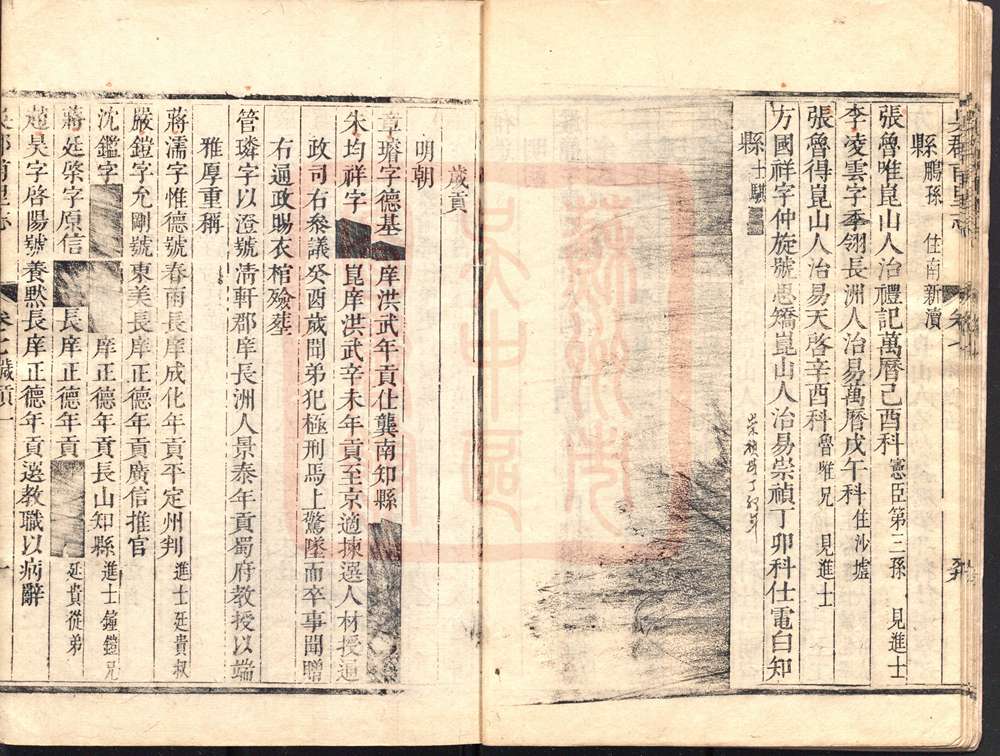 吳郡甫里志
縣 鵬孫 住南新瀆
張魯唯崑山人治禮記萬曆己酉科 憲臣第三孫 見進士
李凌雲字季翎長洲人治易萬曆戊午科 住沙墟
張魯得崑山人治易天啓辛酉科 魯唯兄 見進士
方國祥字仲旋號思矯崑山人治易崇禎丁卯科仕電白知
縣 士騏
歲貢
明朝
章璿字德基 庠洪武年貢仕龔南知縣
朱均祥字 崑庠洪武辛未年貢至京適揀選人材授通
政司右參議癸酉歲聞弟犯極刑馬上驚墜而卒事聞贈
右通政賜衣棺殮塟
管璘字以澄號淸軒郡庠長洲人景泰年貢蜀府教授以端
雅厚重稱
蔣濡字惟德號春雨長庠成化年貢平定州判 進士廷貴叔
嚴鎧字允剛號東美長庠正德年貢廣信推官
沈鑑字 庠正德年貢長山知縣 進士鐘鎧兄
蔣廷棨字原信 長庠正德年貢 廷貴從弟
趙昊字啓陽號養黙長庠正德年貢選教職以病辭
吳郡甫里志 卷七 歲貢 一